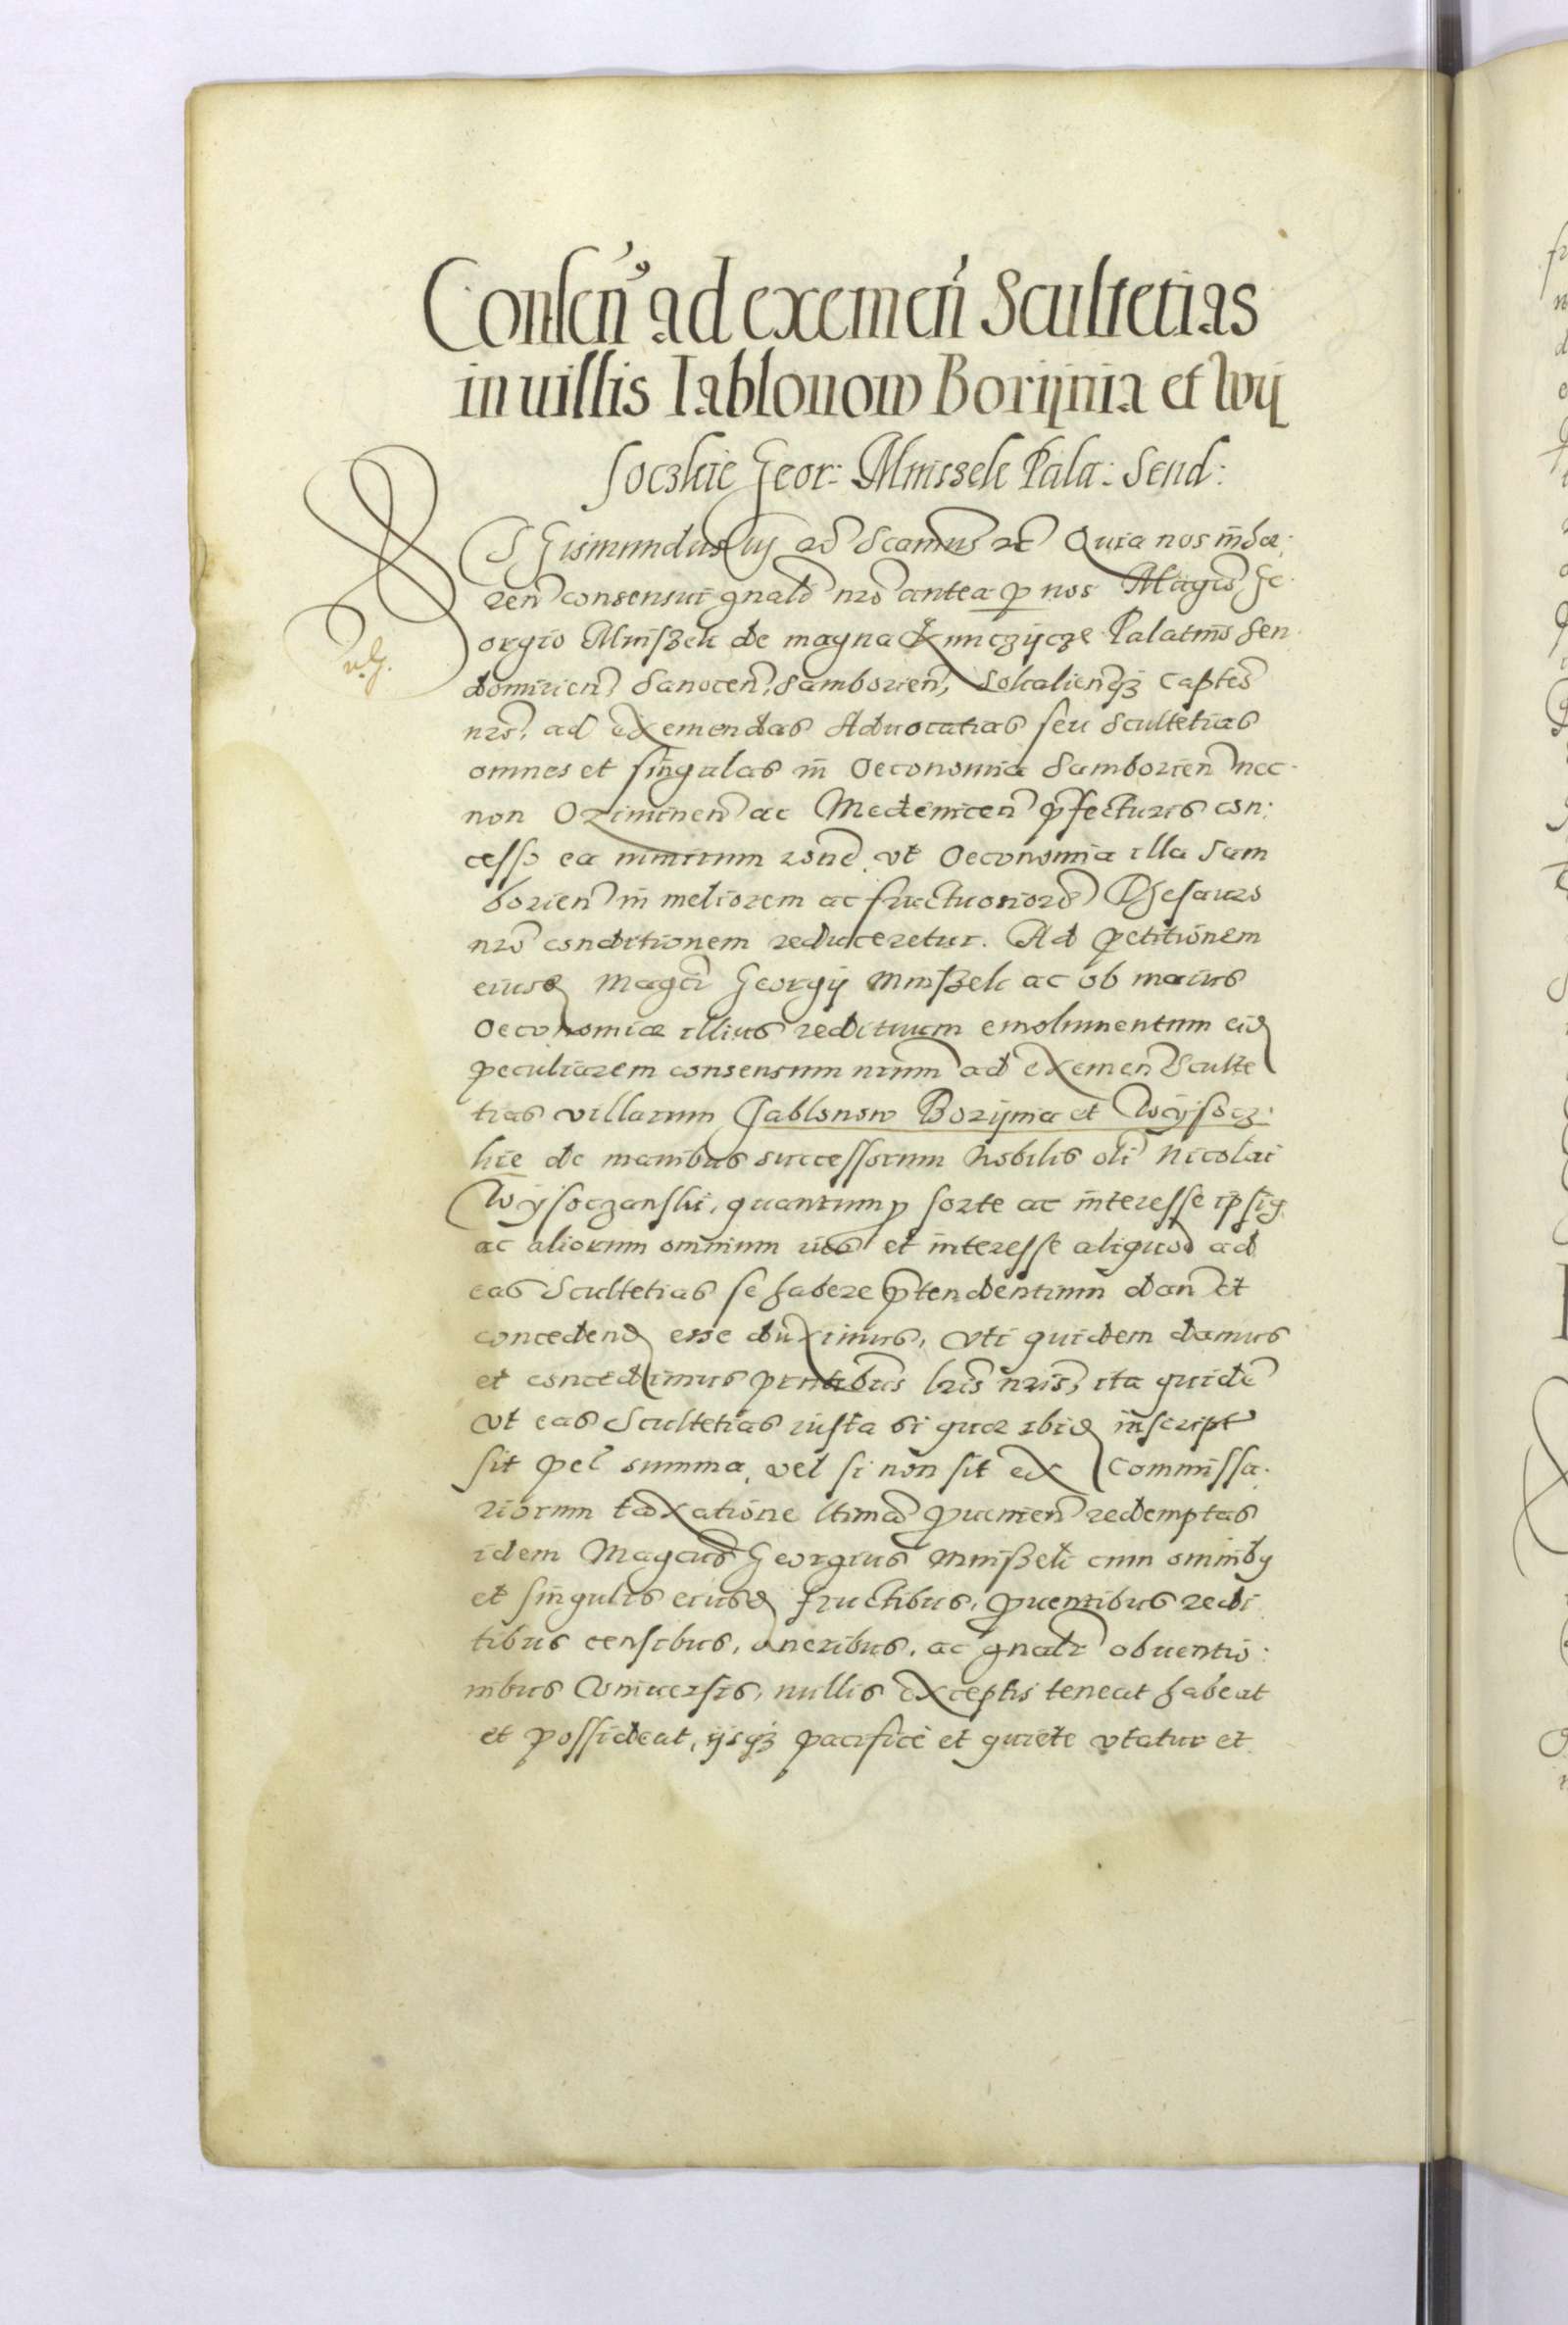 Consen' ad exemen' Scultetias
in uillis Iablonow Borijnia et Wij
soczkie Geor: Mniszek Pala: Send:
SIGismundus iij etc Scamus etc Quia nos inhæ:
ren consensui gnali nro antea p nos Magco Ge
orgio Mniszek de magna Kunczÿcze Palatino Sen
domirien, Sanocen, Samborien, Sokalienqz Capteo
nro, ad exemendas Aduocatias seu Scultetias
omnes et singulas in Oeconomia Samborien nec
non Oziminen ac Medenicen pfecturis con:
cesso ea nimirum rone, vt Oeconomia illa Sam
borien in meliorem ac fructuosiore Thesauro
nro conditionem reduceretur. Ad petitionem
eiusd Magci Georgij Mniszek ac ob maius
Oeconomiæ illius redituum emolumentum eid
peculiarem consensum nrum ad exemen Sculte
tias villarum Jablonow Borijnia et Wÿsocz
kie de manibus successorum Nobilis oli Nicolai
Wÿsoczanski, quantum p sorte ac interesse ipsis
ac aliorum omnium ius et interesse aliquod ad
eas Scultetias se habere ptendentium dan et
concedend esse duximus, Vti quidem damus
et concedimus pntibus lris nris, ita quide
Vt eas Scultetias iusta si quæ ibid inscript
sit pel summa, vel si non sit ex Commissa.
riorum taxatione ltima puenien redemptas
idem Magcus Georgius Mniszek cum omnibg
et singulis eiusd fructibus, puentibus redi
tibus censibus, oneribus, ac gnalr obuentio:
nibus Vniuersis, nullis exceptis teneat habeat
et possideat, ijsqz pacifice et quiete vtatur et